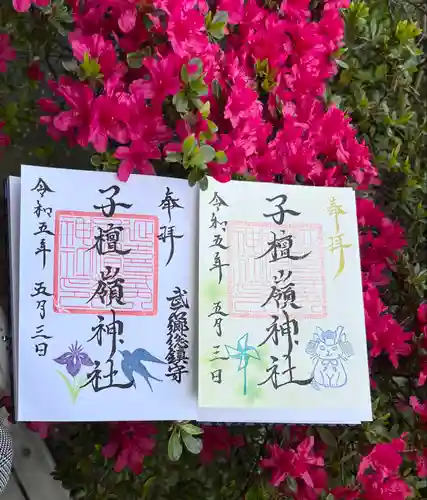 奉拝
武郷総鎮守
子檀嶺神社
令和五年五月三日
奉拝
子檀嶺神社
令和五年五月三日